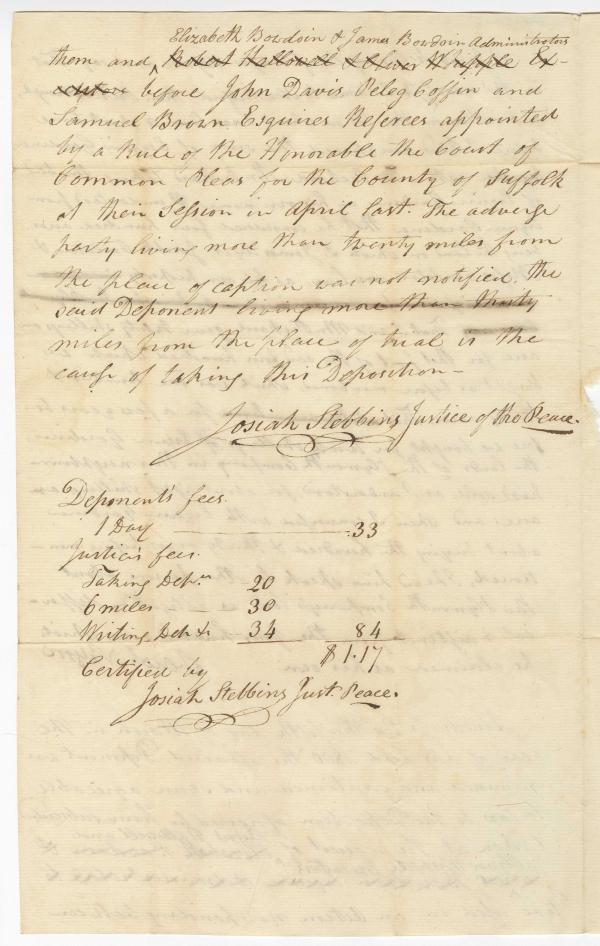 Elizabeth Bowdoin & James Bowdoin Administrators
them and ^ Robert Hallowell & Oliver Whipple Ex-
ecutors before John Davis Peleg Coffin and
Samuel Brown Esquires Referees appointed
by a Rule of the Honorable the Court of
Common Pleas for the County of Suffolk
at their Session in April last. The adverse
party living more than twenty miles from
the place of caption was not notified. The
said Deponent living more than thirty
miles from the place of trial is the
cause of taking this Deposition -
Josiah Stebbins Justice of the Peace.
Deponent's fees.
1 Day .33
Justice's fees.
Taking Depn. 20
6 miles 30
Writing Dep &. 34 84
$1.17
Certified by
Josiah Stebbins Just. Peace.